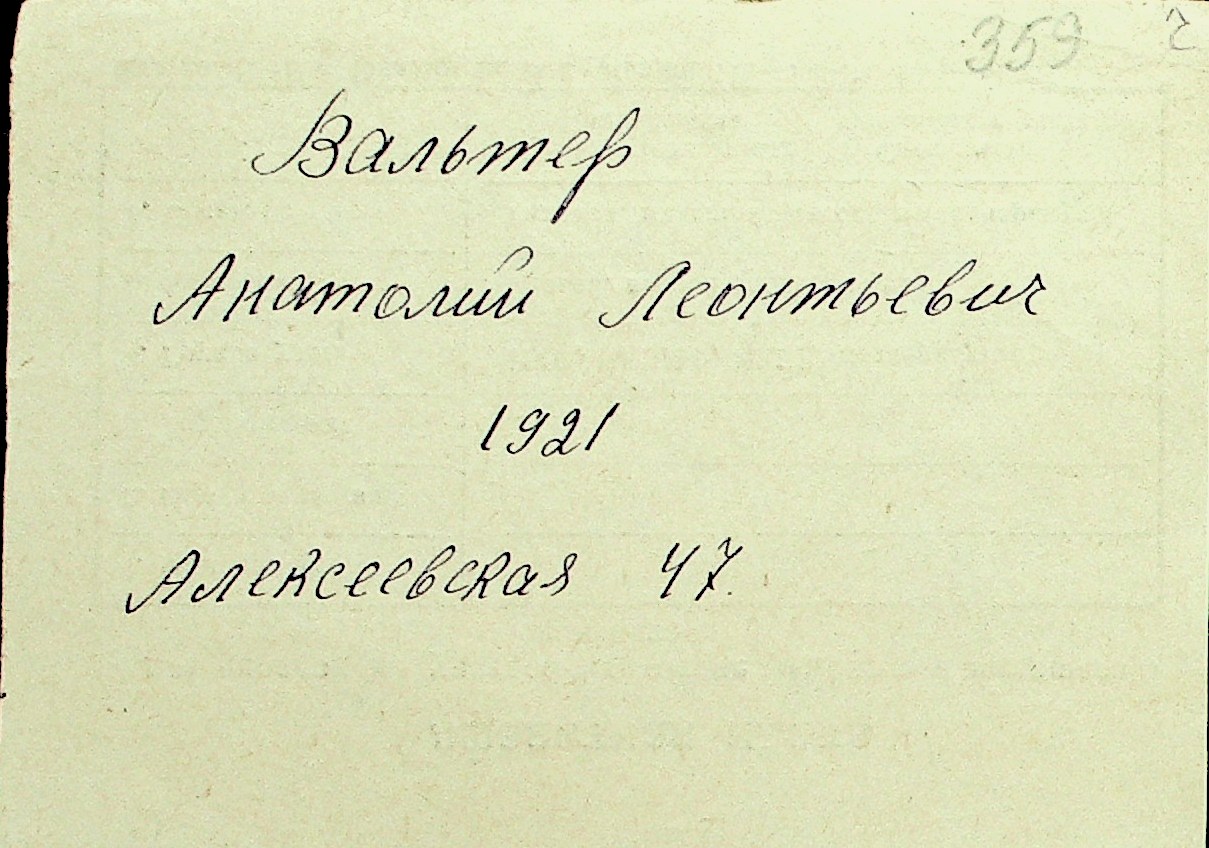 359
Вальтер
Анатолий Леонтьевич
1921
Алексеевская 47.